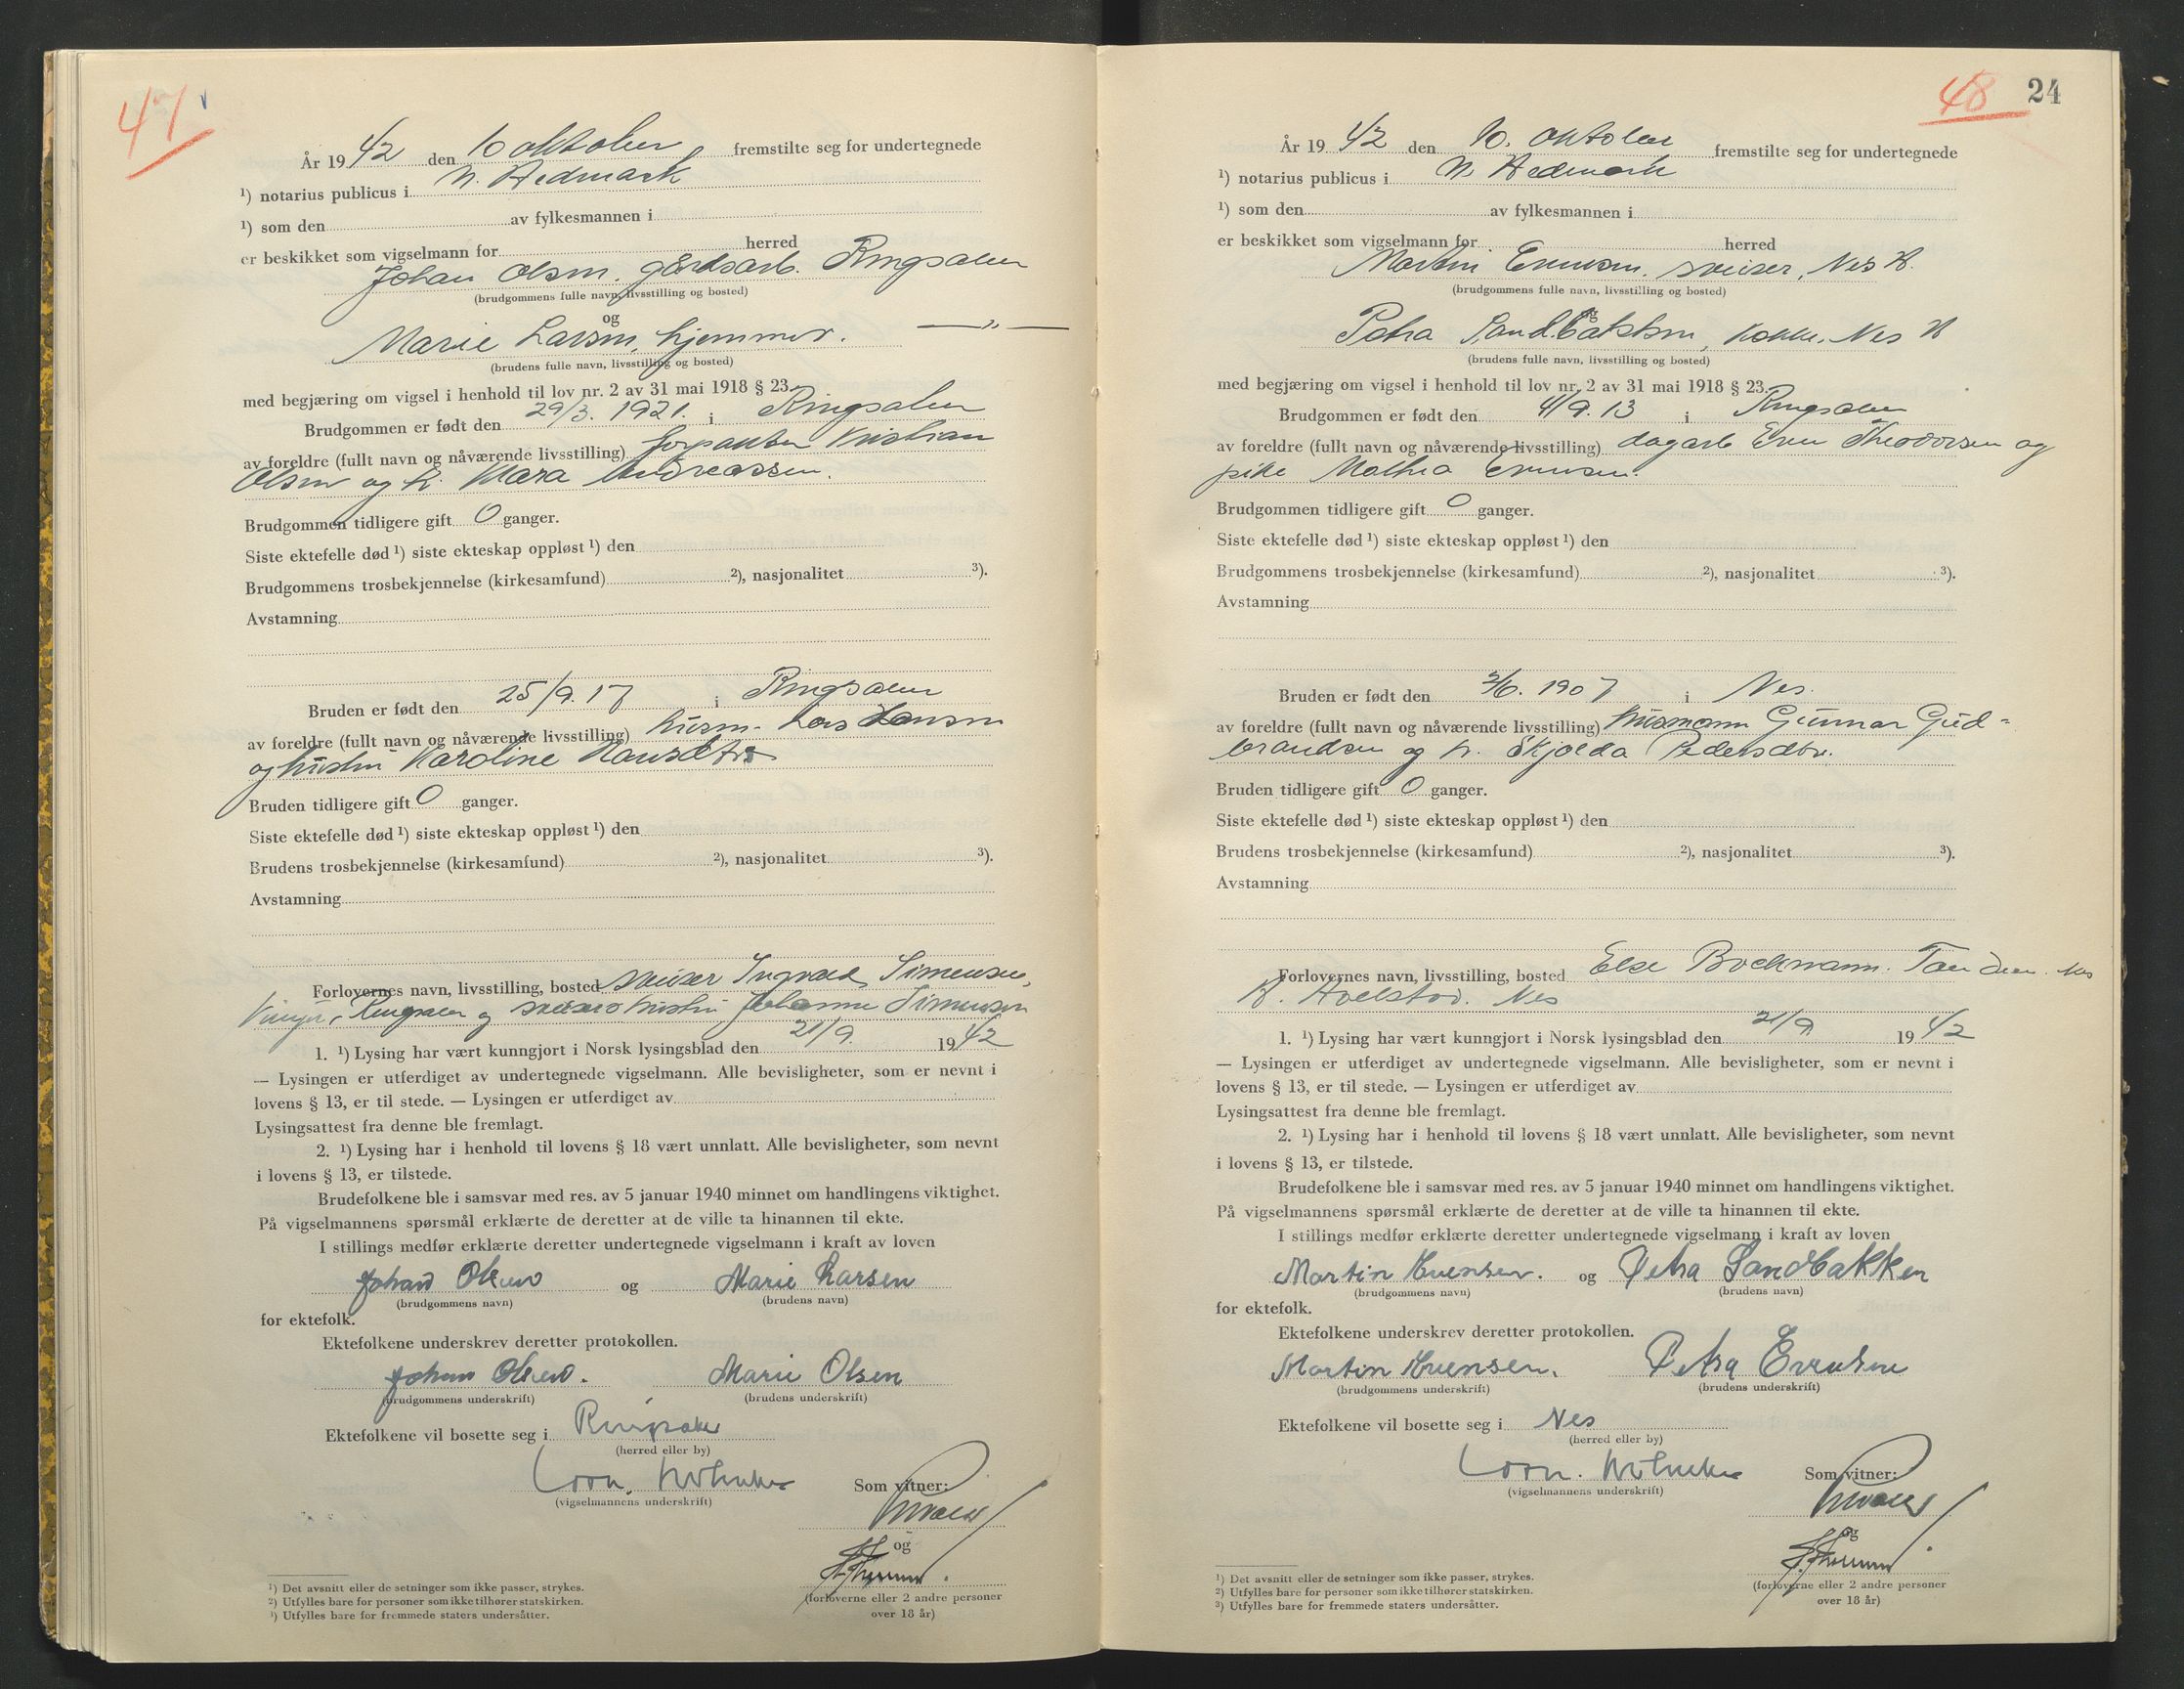 47
År 1942 den 10 oktober fremstilte seg for undertegnede
¹) notarius publicus i N. Hedmark
¹) som den av fylkesmannen i
er beskikket som vigselmann for herred
Johan Olsen, gårdsarb. Ringsaker
(brudgommens fulle navn, livsstilling og bosted)
og
Marie Larsen, hjemmev. — " —
(brudens fulle navn, livsstilling og bosted)
med begjæring om vigsel i henhold til lov nr. 2 av 31 mai 1918 § 23.
Brudgommen er født den 29/3. 1921. i Ringsaker
av foreldre (fullt navn og nåværende livsstilling) forpakter Kristian
Olsen og h. Klara Andreassen.
Brudgommen tidligere gift 0 ganger.
Siste ektefelle død ¹) siste ekteskap oppløst ¹) den
Brudgommens trosbekjennelse (kirkesamfund) ²), nasjonalitet ³).
Avstamning
Bruden er født den 25/9. 17 i Ringsaker
av foreldre (fullt navn og nåværende livsstilling) husm. Lars Hansen
og hustru Karoline Hansdtr
Bruden tidligere gift 0 ganger.
Siste ektefelle død ¹) siste ekteskap oppløst ¹) den
Brudens trosbekjennelse (kirkesamfund) ²), nasjonalitet ³).
Avstamning
Forlovernes navn, livsstilling, bosted sveiser Ingvald Simensen,
Ringsaker og hustru Johanne Simensen
1. ¹) Lysing har vært kunngjort i Norsk lysingsblad den 21/9. 1942
— Lysingen er utferdiget av undertegnede vigselmann. Alle bevisligheter, som er nevnt i
lovens § 13, er til stede. — Lysingen er utferdiget av
Lysingsattest fra denne ble fremlagt.
2. ¹) Lysing har i henhold til lovens § 18 vært unnlatt. Alle bevisligheter, som nevnt
i lovens § 13, er tilstede.
Brudefolkene ble i samsvar med res. av 5 januar 1940 minnet om handlingens viktighet.
På vigselmannens spørsmål erklærte de deretter at de ville ta hinannen til ekte.
I stillings medfør erklærte deretter undertegnede vigselmann i kraft av loven
Johan Olsen og Marie Larsen
(brudgommens navn) (brudens navn)
for ektefolk.
Ektefolkene underskrev deretter protokollen.
Johan Olsen. Marie Olsen
(brudgommens underskrift) (brudens underskrift)
Ektefolkene vil bosette seg i Ringsaker
(herred eller by)
(vigselmannens underskrift)
Som vitner:
og
(forloverne eller 2 andre personer
over 18 år)
¹) Det avsnitt eller de setninger som ikke passer, strykes.
²) Utfylles bare for personer som ikke tilhører statskirken.
³) Utfylles bare for fremmede staters undersåtter.
48 24
År 1942 den 10. oktober fremstilte seg for undertegnede
¹) notarius publicus i N. Hedmark
¹) som den av fylkesmannen i
er beskikket som vigselmann for herred
Martin Evensen, sveiser, Nes H.
(brudgommens fulle navn, livsstilling og bosted)
og
Petra Sandbakken, kokke, Nes H
(brudens fulle navn, livsstilling og bosted)
med begjæring om vigsel i henhold til lov nr. 2 av 31 mai 1918 § 23.
Brudgommen er født den 4/9. 13 i Ringsaker
av foreldre (fullt navn og nåværende livsstilling) dagarb Even Theodorsen og
pike Mathea Evensen.
Brudgommen tidligere gift 0 ganger.
Siste ektefelle død ¹) siste ekteskap oppløst ¹) den
Brudgommens trosbekjennelse (kirkesamfund) ²), nasjonalitet ³).
Avstamning
Bruden er født den 2/6. 1907 i Nes.
av foreldre (fullt navn og nåværende livsstilling) husmann Gunnar Gud-
brandsen og h. Skjolda Pedersdtr.
Bruden tidligere gift 0 ganger.
Siste ektefelle død ¹) siste ekteskap oppløst ¹) den
Brudens trosbekjennelse (kirkesamfund) ²), nasjonalitet ³).
Avstamning
Forlovernes navn, livsstilling, bosted Else Bockmann. Nes
Nes
1. ¹) Lysing har vært kunngjort i Norsk lysingsblad den 21/9. 1942
— Lysingen er utferdiget av undertegnede vigselmann. Alle bevisligheter, som er nevnt i
lovens § 13, er til stede. — Lysingen er utferdiget av
Lysingsattest fra denne ble fremlagt.
2. ¹) Lysing har i henhold til lovens § 18 vært unnlatt. Alle bevisligheter, som nevnt
i lovens § 13, er tilstede.
Brudefolkene ble i samsvar med res. av 5 januar 1940 minnet om handlingens viktighet.
På vigselmannens spørsmål erklærte de deretter at de ville ta hinannen til ekte.
I stillings medfør erklærte deretter undertegnede vigselmann i kraft av loven
Martin Evensen. og Petra Sandbakken
(brudgommens navn) (brudens navn)
for ektefolk.
Ektefolkene underskrev deretter protokollen.
Martin Evensen. Petra Evensen
(brudgommens underskrift) (brudens underskrift)
Ektefolkene vil bosette seg i Nes
(herred eller by)
(vigselmannens underskrift)
Som vitner:
og
(forloverne eller 2 andre personer
over 18 år)
¹) Det avsnitt eller de setninger som ikke passer, strykes.
²) Utfylles bare for personer som ikke tilhører statskirken.
³) Utfylles bare for fremmede staters undersåtter.